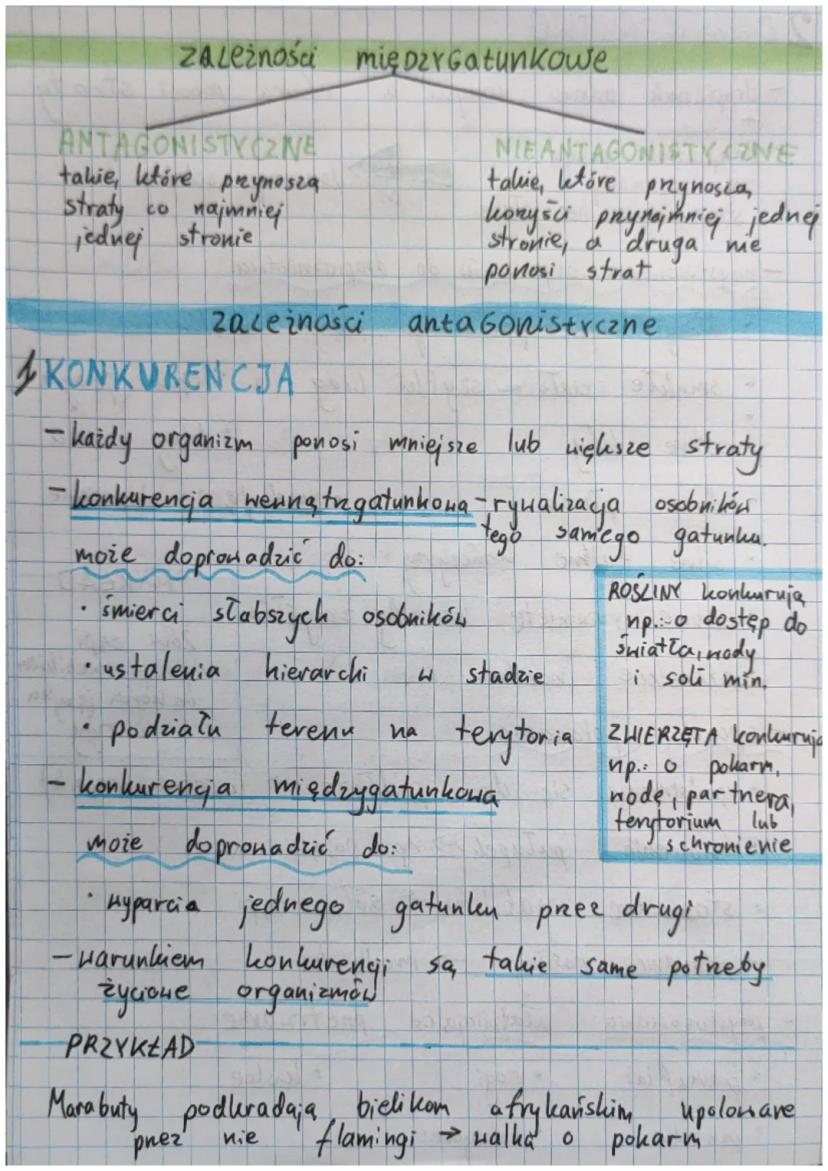 zależności międzygatunkowe
ANTAGONISTYCZNE
takie, które przynoszą
straty co najmniej
jednej stronie
NIEANTAGONISTYCZNE
takie, które przynoszą
korzyści przynajmniej jednej
stronie, a druga nie
ponosi strat
zależności antagonistyczne
1 KONKURENCJA
- każdy organizm ponosi mniejsze lub większe straty
- konkurencja wewnątrzgatunkowa - rywalizacja osobników
tego samego gatunku.
może doprowadzić do:
• śmierci słabszych osobników
• ustalenia hierarchi w stadzie
• podziału terenu na terytoria
ROŚLINY konkurują
np.: o dostęp do
światła, wody
i soli min.
ZWIERZĘTA konkurują
np.: o pokarm,
wodę, partnera,
terytorium lub
schronienie
- konkurencja międzygatunkowa
może doprowadzić do:
• wyparcia jednego gatunku przez drugi
- warunkiem konkurencji są takie same potrzeby
życiowe organizmów
PRZYKŁAD
Marabuty podkradają bielikom afrykańskim upolowane
przez nie flamingi → walka o pokarm